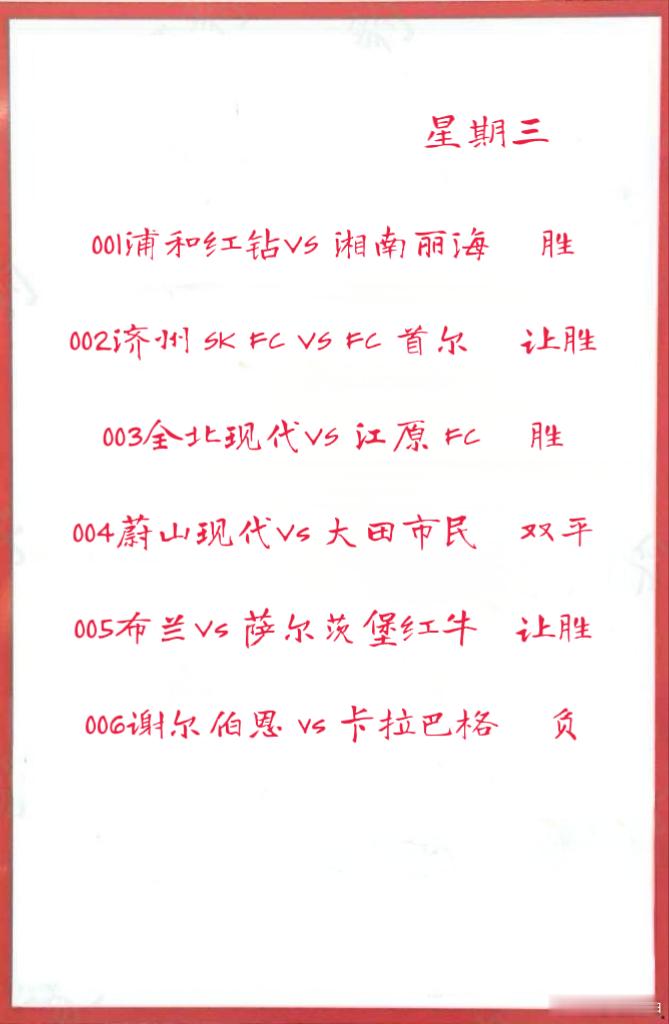 星期三
001浦和红钻VS 湘南丽海 胜
002济州 SK FC VS FC 首尔 让胜
003全北现代VS 江原 FC 胜
004蔚山现代Vs 大田市民 双平
005布兰Vs 萨尔茨堡红牛 让胜
006谢尔伯恩 vs 卡拉巴格 负